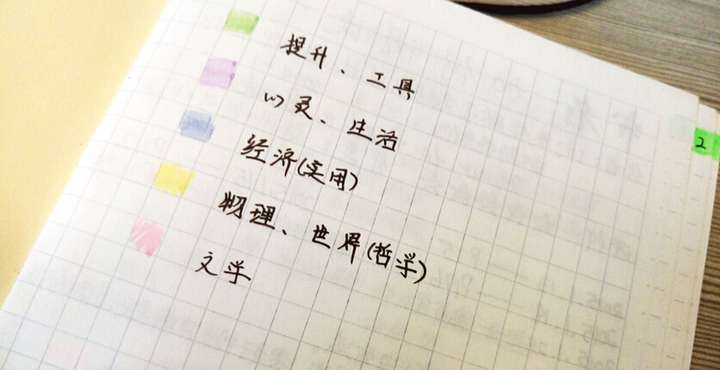 提升、工具
心灵、生活
经济(实用)
物理、世界(哲学)
文学
2